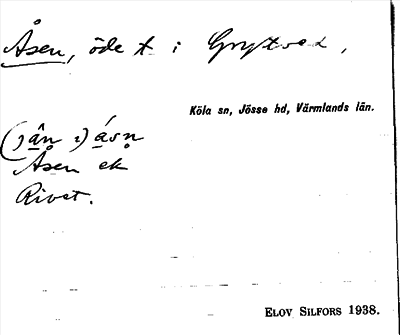 Åsen, öde t i Grytved,
Köla sn, Jösse hd, Värmlands län.
Åsen ek
Rivet.
ELOV SILFORS 1938.